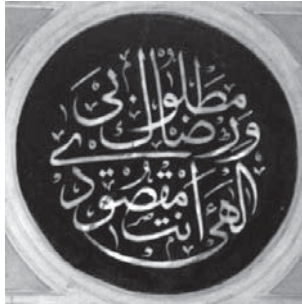 الهى انت مقصودى
ورضاك مطلوبى